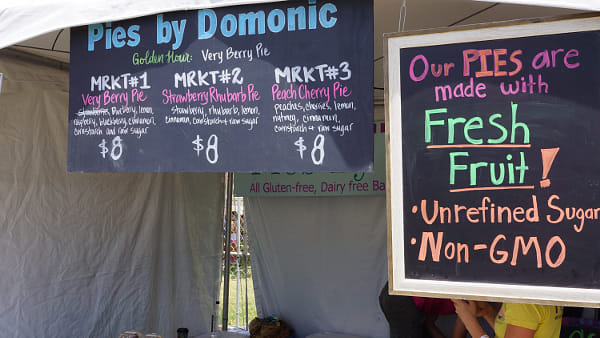 Pies by Domonic
Golden Hour: Very Berry Pie
MRKT#1
Very Berry Pie
blueberry, lemon,
raspberry, blackberry, cinnamon,
cornstarch and raw sugar
$8
MRKT#2
Strawberry Rhubarb Pie
strawberry, rhubarb, lemon,
cinnamon, cornstarch + raw sugar
$8
MRKT#3
Peach Cherry Pie
peaches, cherries, lemon,
nutmeg, cinnamon,
cornstarch + raw sugar
$8
All Gluten-free, Dairy free
Our PIES are
made with
Fresh
Fruit!
• Unrefined Sugar
• Non-GMO